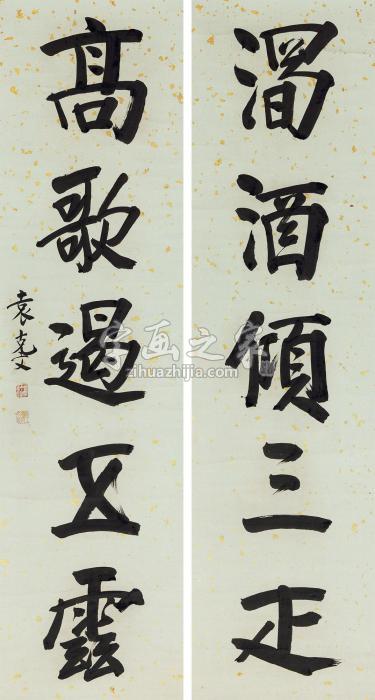 酒傾三疋
髙歌遏五雲
袁克文
字画之家
zihuazhijia.com